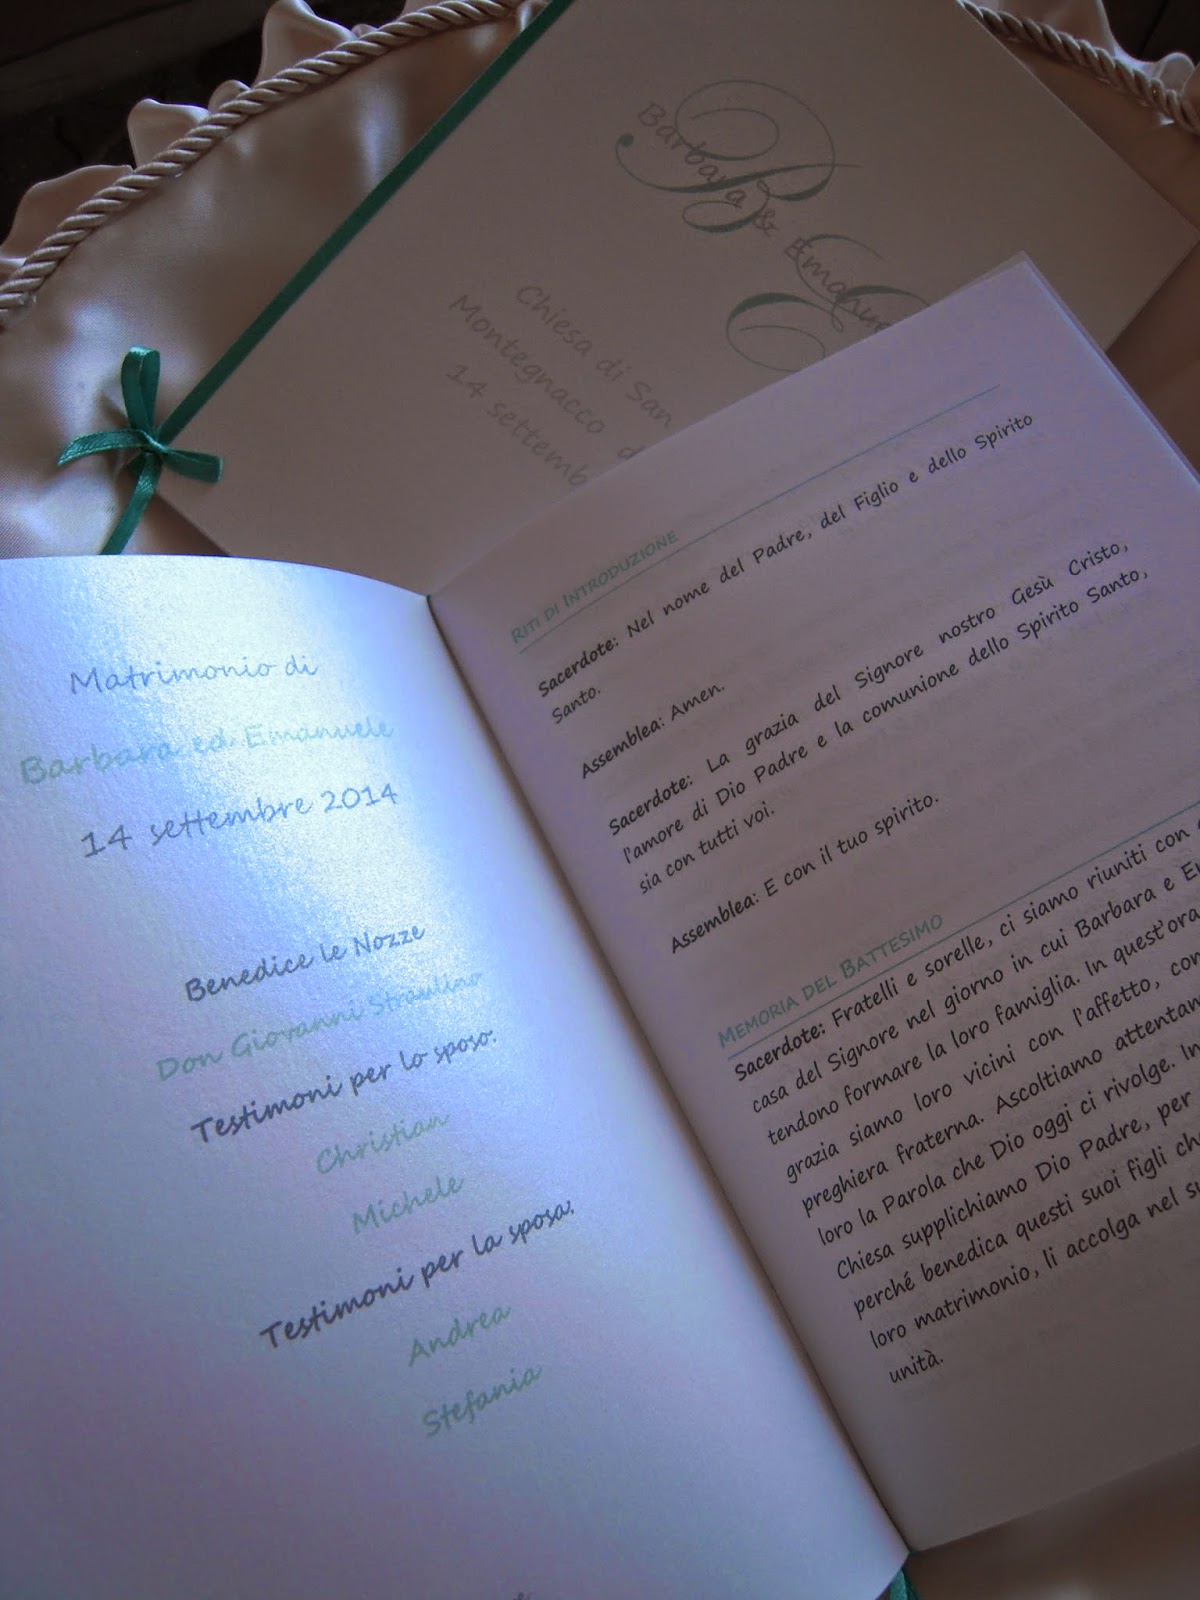 Barbara & Emanue
B
E
Chiesa di San
Montegnacco
14 settemb
Matrimonio di
Barbara ed Emanuele
14 settembre 2014
Benedice le Nozze
Don Giovanni Straulino
Testimoni per lo sposo:
Christian
Michele
Testimoni per la sposa:
Andrea
Stefania
RITI DI INTRODUZIONE
Sacerdote: Nel nome del Padre, del Figlio e dello Spirito
Santo.
Assemblea: Amen.
Sacerdote: La grazia del Signore nostro Gesù Cristo,
l'amore di Dio Padre e la comunione dello Spirito Santo,
sia con tutti voi.
Assemblea: E con il tuo spirito.
MEMORIA DEL BATTESIMO
Sacerdote: Fratelli e sorelle, ci siamo riuniti con
casa del Signore nel giorno in cui Barbara e E
tendono formare la loro famiglia. In quest'ora
grazia siamo loro vicini con l'affetto, con
preghiera fraterna. Ascoltiamo attentam
loro la Parola che Dio oggi ci rivolge. In
Chiesa supplichiamo Dio Padre, per
perché benedica questi suoi figli ch
loro matrimonio, li accolga nel su
unità.